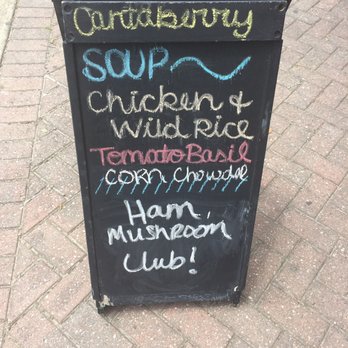 Cantaberry
SOUP
Chicken &
Wild Rice
Tomato Basil
CORN Chowdah
Ham,
Mushroom
Club!